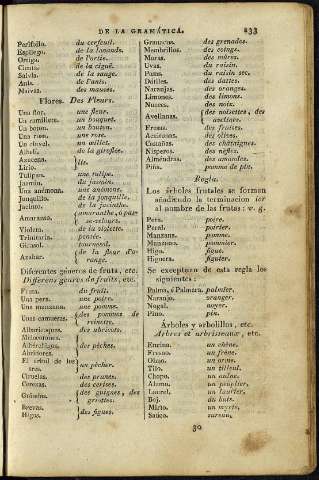 DE LA GRAMÁTICA. 233
Perifollo. du cerfeuil.
Espliego. de la lavande.
Ortiga. de l'ortie.
Cicuta. de la ciguë.
Salvia. de la sauge.
Anís. de l'anis.
Malvas. des mauves.
Flores. Des Fleurs.
Una flor. une fleur.
Un ramillete. un bouquet.
Un boton. un bouton.
Una rosa. une rose.
Un clavel. un œillet.
Alhelí. de la giroflée.
Azucena.
Lirio. } lis.
Tulipan. une tulipe.
Jazmin. du jasmin.
Una anémona. une anémone.
Junquillo. de la jonquille.
Jacinto. de la jacinthe.
Amaranto. { amaranthe, ó passe-velours.
Violeta. de la violette.
Trinitaria. pensée.
Girasol. tournesol.
Azahar. { de la fleur d'orange.
Diferentes géneros de fruta, etc.
Differens genres de fruits, etc.
Fruta. du fruit.
Una pera. une poire.
Una manzana. une pomme.
Unas camuesas. { des pommes de reinette.
Albaricoques. des abricots.
Melocotones.
Albérchigos. } des pêches.
Abridores.
El árbol de los tres. } un pêcher.
Ciruelas. des prunes.
Cerezas. des cerises.
Guindas. { des guignes, des griottes.
Brevas.
Higos. } des figues.
Granadas. des grenades.
Membrillos. des coings.
Moras. des mûres.
Uvas. du raisin.
Pasas. du raisin sec.
Dátiles. des dattes.
Naranjas. des oranges.
Limones. des limons.
Nueces. des noix.
Avellanas. { des noisettes, des avelines.
Fresas. des fraises.
Aceitunas. des olives.
Castañas. des chataignes.
Nísperos. des nèfles.
Almendras. des amandes.
Piña. pomme de pin.
Regla.
Los árboles frutales se forman
añadiendo la terminacion ier
al nombre de las frutas: v. g.
Pera. poire.
Peral. poirier.
Manzana. pomme.
Manzano. pommier.
Higo. figue.
Higuera. figuier.
Se exceptuan de esta regla los
siguientes:
Palma, ó Palmera. palmier.
Naranjo. oranger.
Nogal. noyer.
Pino. pin.
Árboles y arbolillos, etc.
Arbres et arbrisseaux, etc.
Encina. un chêne.
Fresno. un frêne.
Olmo. un orme.
Tilo. un tilleul.
Chopo. un aulne.
Álamo. un peuplier.
Laurel. un laurier.
Boj. du buis.
Mirto. un myrte.
Sauco. sureau.
30